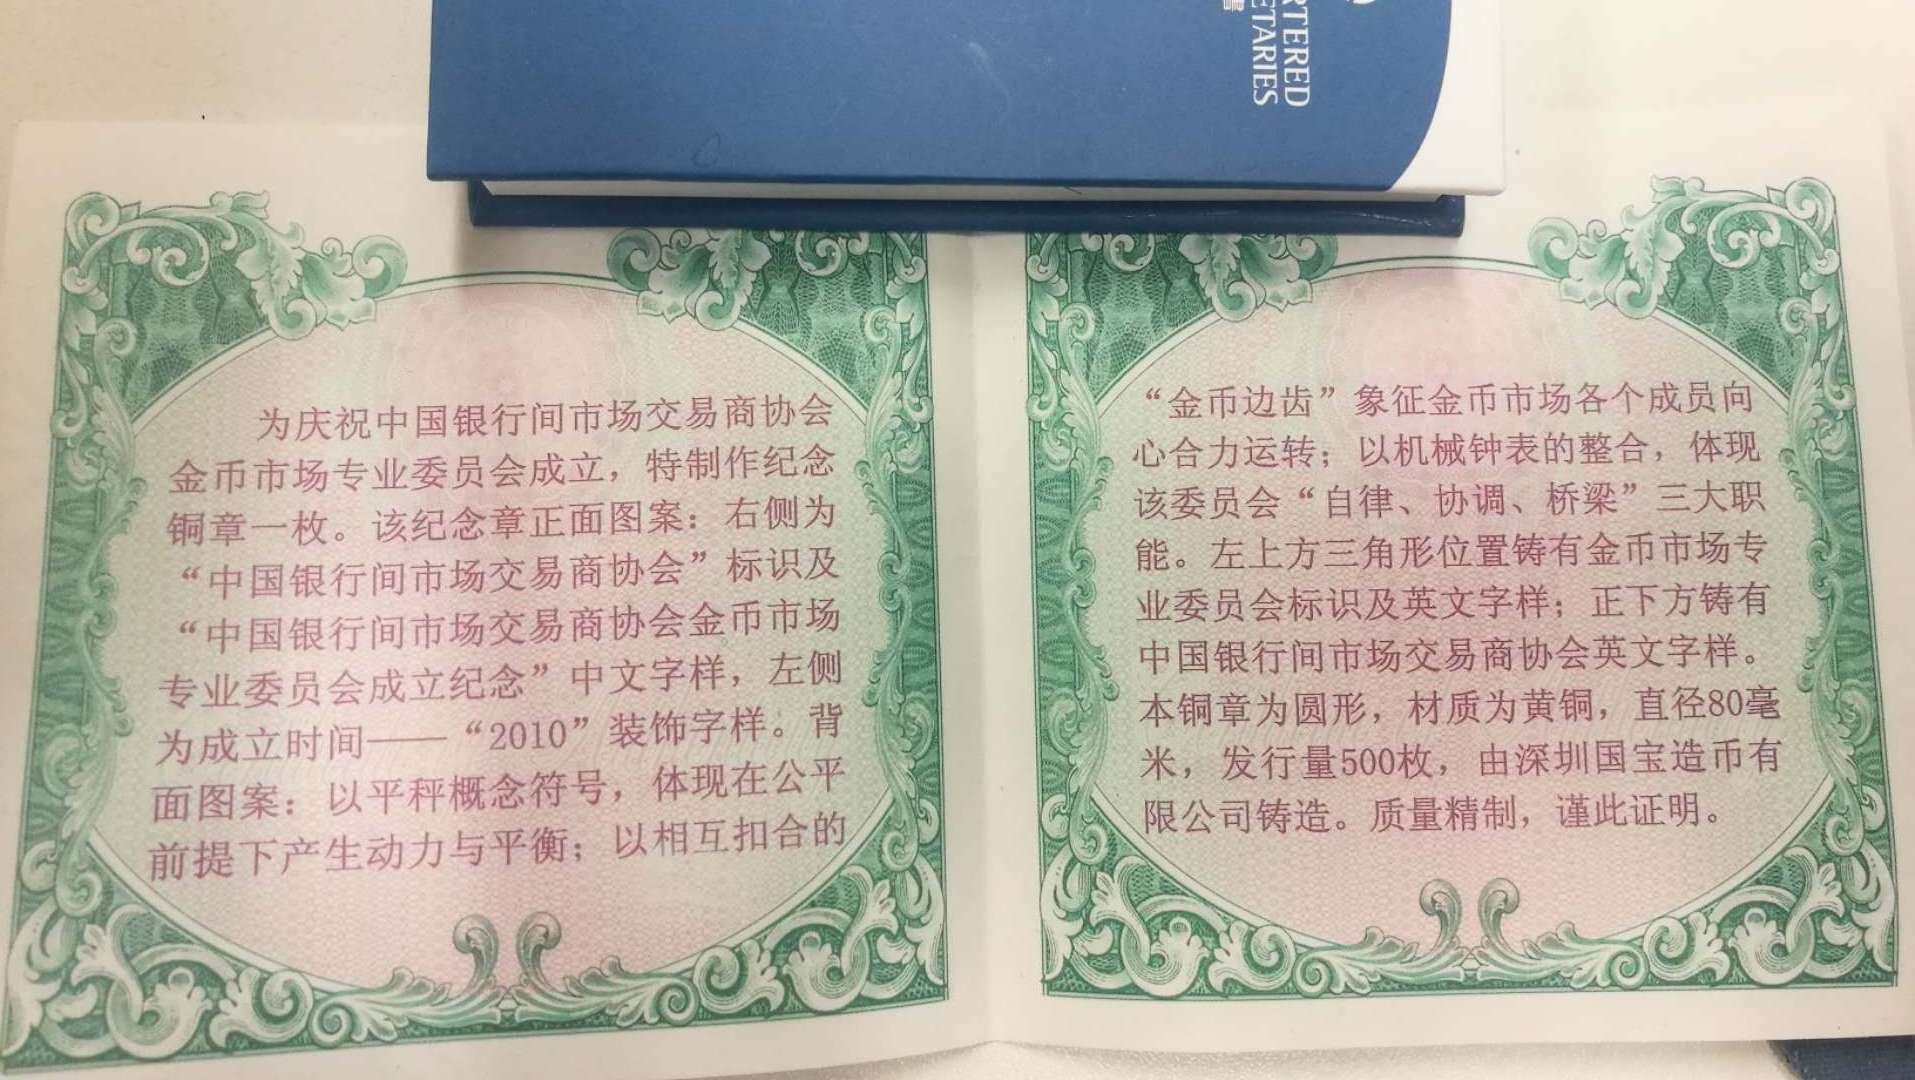 RTERED
ETARIES
書
为庆祝中国银行间市场交易商协会
金币市场专业委员会成立，特制作纪念
铜章一枚。该纪念章正面图案：右侧为
“中国银行间市场交易商协会”标识及
“中国银行间市场交易商协会金币市场
专业委员会成立纪念”中文字样，左侧
为成立时间——“2010”装饰字样。背
面图案：以平秤概念符号，体现在公平
前提下产生动力与平衡；以相互扣合的
“金币边齿”象征金币市场各个成员向
心合力运转；以机械钟表的整合，体现
该委员会“自律、协调、桥梁”三大职
能。左上方三角形位置铸有金币市场专
业委员会标识及英文字样；正下方铸有
中国银行间市场交易商协会英文字样。
本铜章为圆形，材质为黄铜，直径80毫
米，发行量500枚，由深圳国宝造币有
限公司铸造。质量精制，谨此证明。